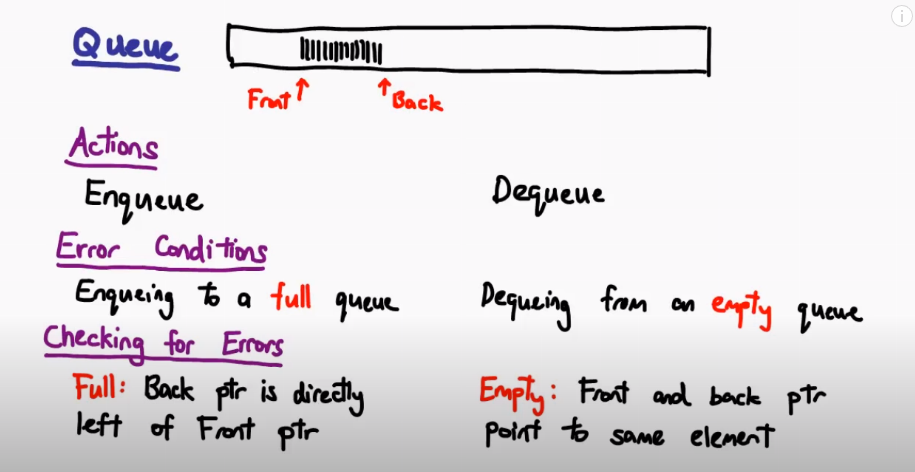 Queue
Front
Back
Actions
Enqueue
Dequeue
Error Conditions
Enqueing to a full queue
Dequeing from an empty queue
Checking for Errors
Full: Back ptr is directly
left of Front ptr
Empty: Front and back ptr
point to same element